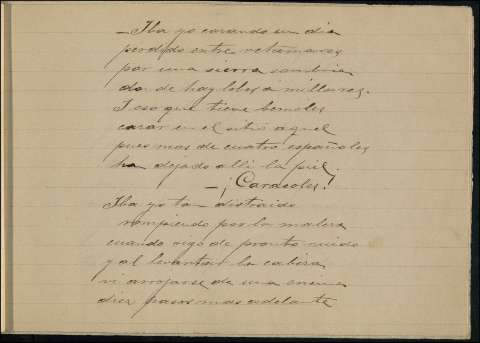 —Iba yo cazando un dia
perdido entre retamares
por una sierra sombria
do de hay lobos á millares.
I eso que tiene bemoles
cazar en el sitio aquel
pues mas de cuatro españoles
ha dejado alli la piel.
—¡Caracoles!
Iba yo tan distraido
rompiendo por la maleza
cuando oigo de pronto ruido
y al levantar la cabeza
vi arrojarse de una encina
diez pasos mas adelante